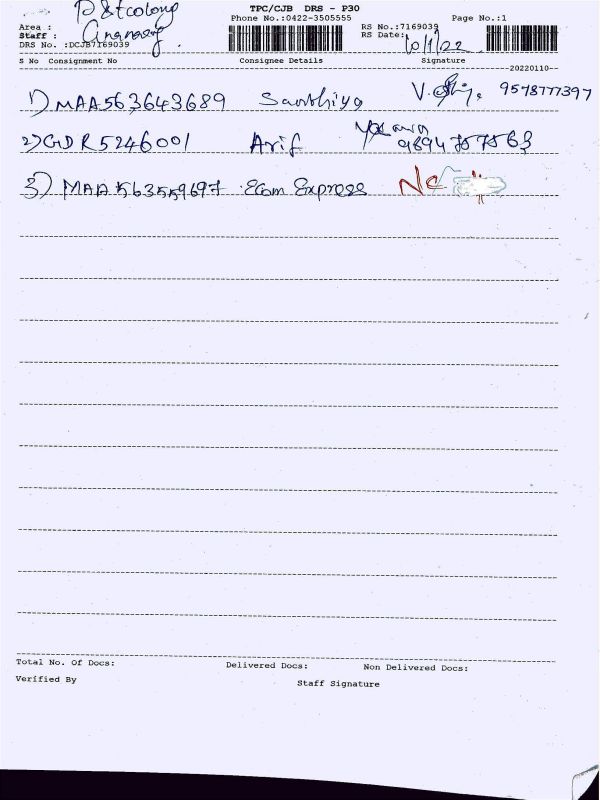 P & t colony
TPC/CJB DRS - P30
Phone No.:0422-3505555 Page No.:1
Area :
RS No.:7169039
Staff :
RS Date: 10/1/22
DRS No. :DCJB7169039
S No Consignment No Consignee Details Signature
--20220110--
1) MAA563643689 Santhiya V. 9578777397
2) GDR5246001 Arif 9894757563
3) MAA563559697 Ecom Express NC
Total No. Of Docs: Delivered Docs: Non Delivered Docs:
Verified By Staff Signature